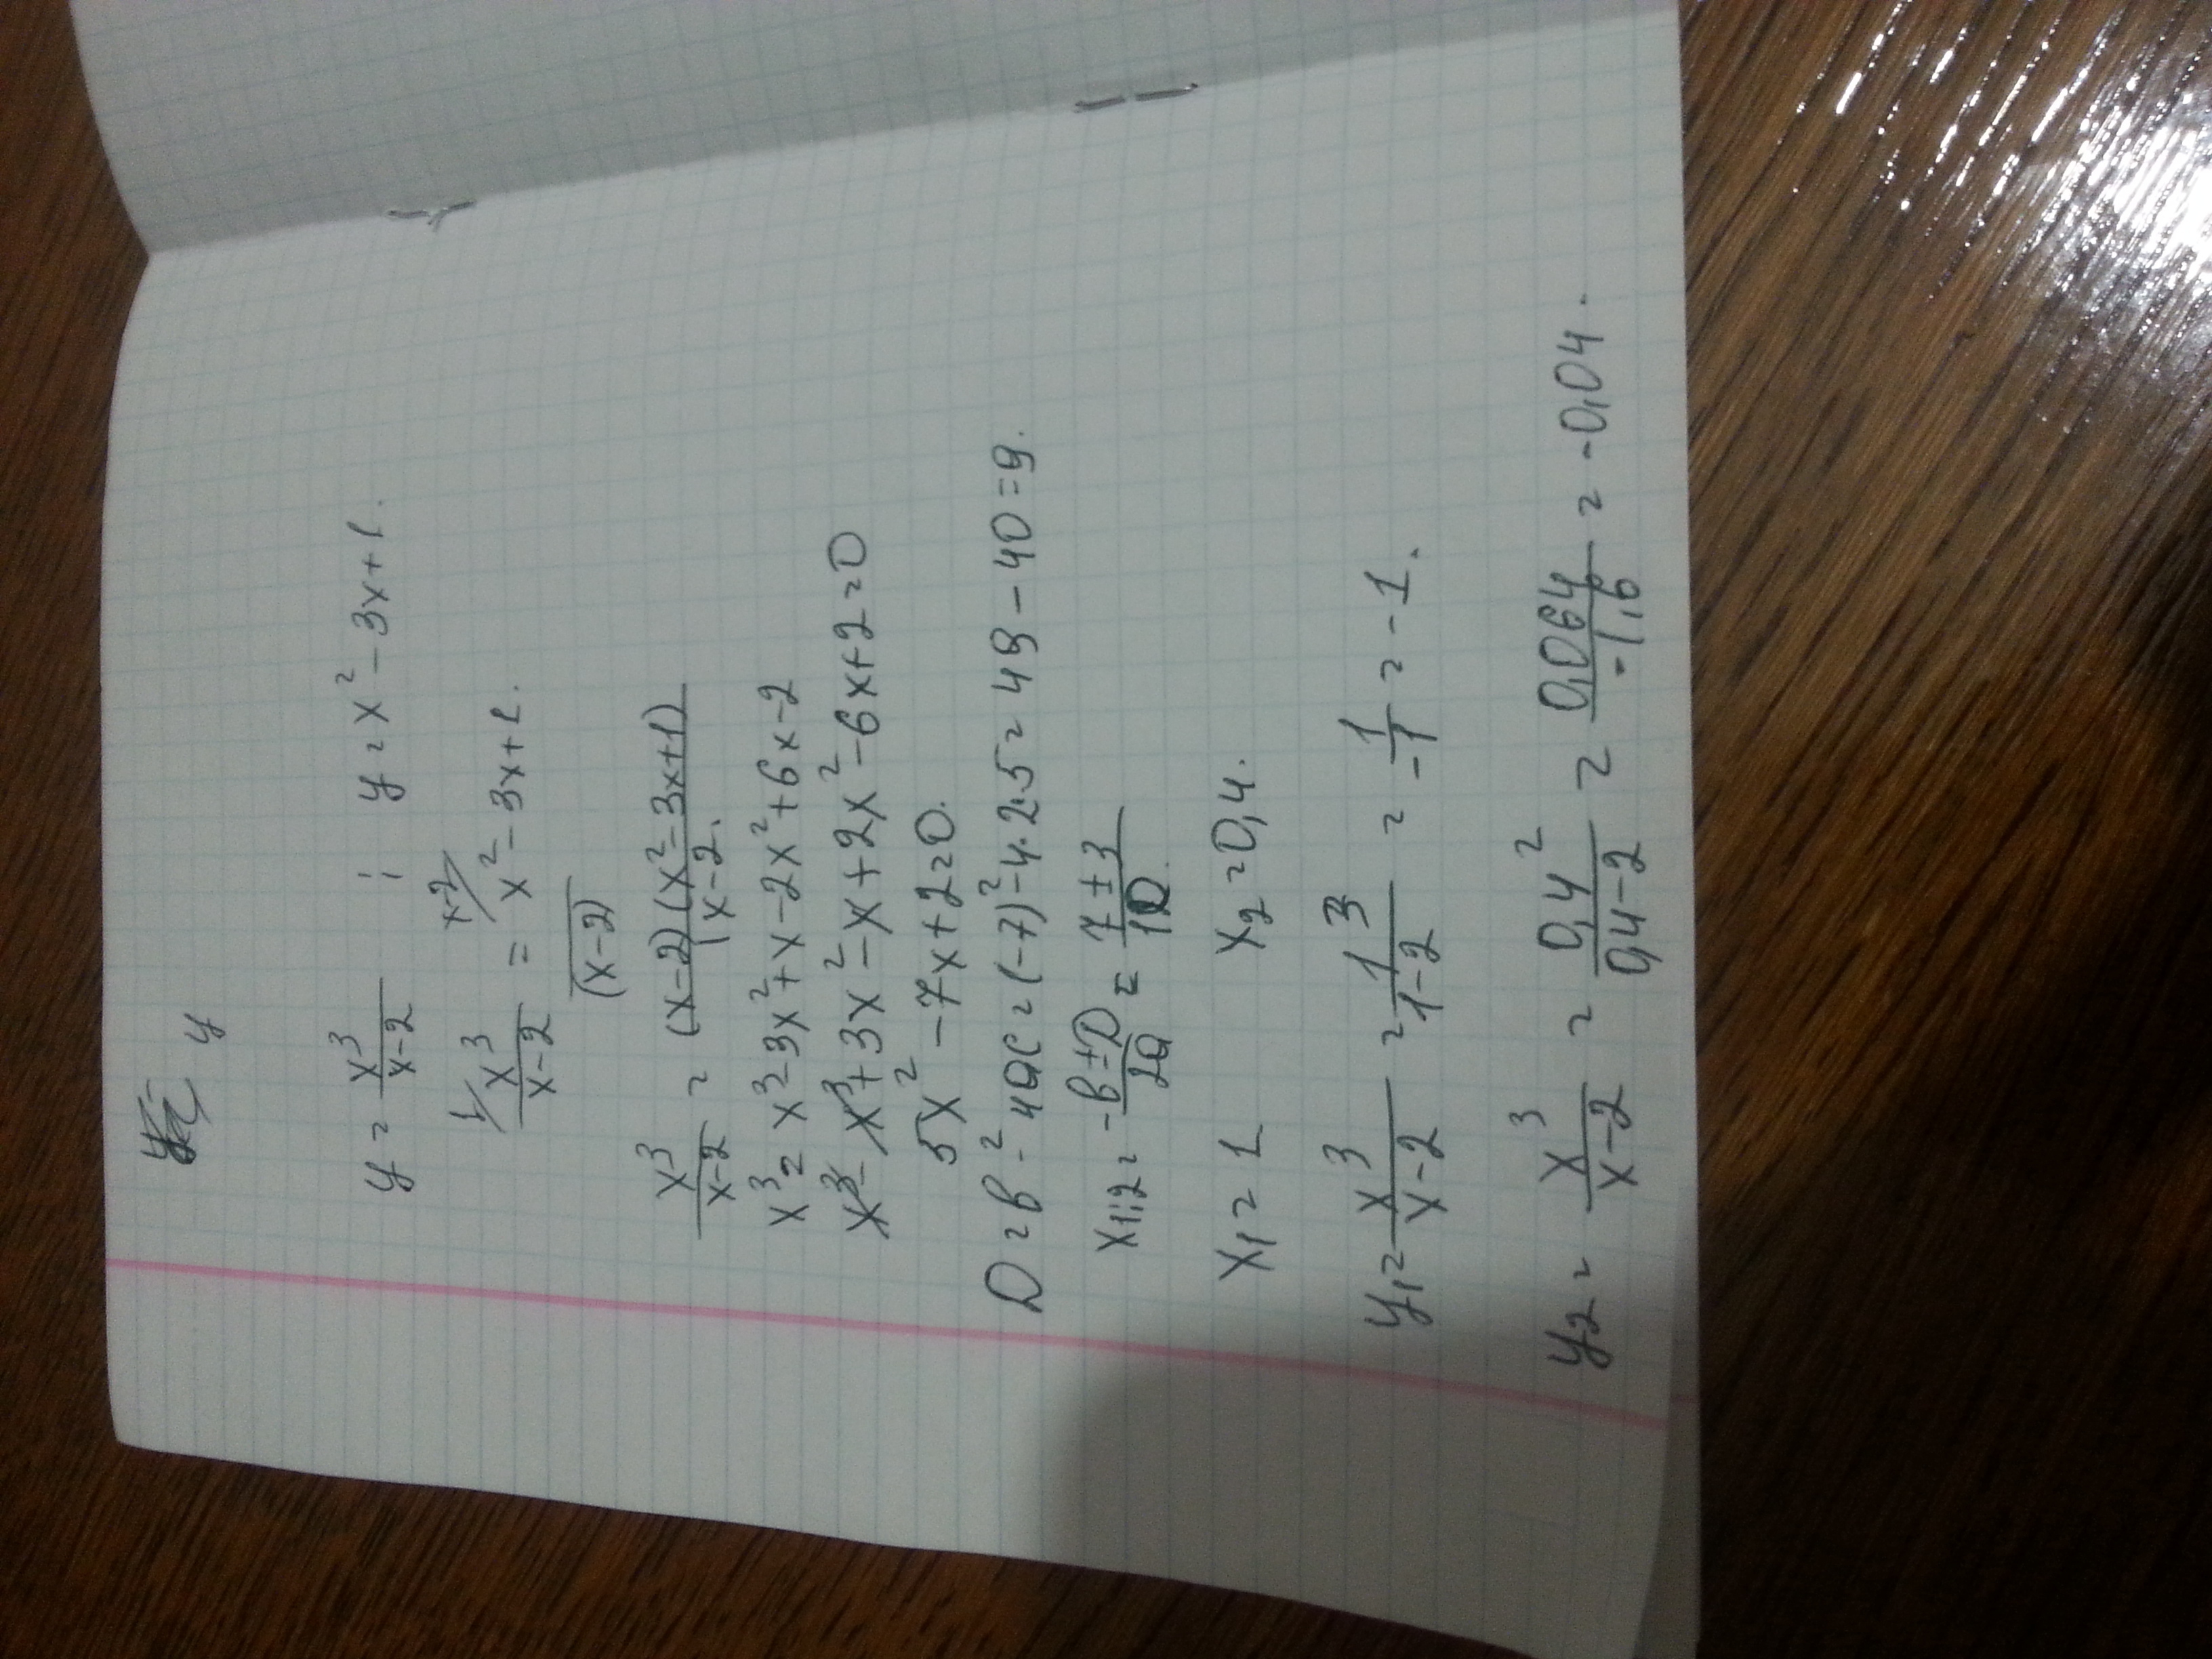 y
y = x³/(x-2) ; y = x² - 3x + 1.
1/ x³/(x-2) = x-2/ x² - 3x + 1.
(x-2)
x³/(x-2) = (x-2)(x²-3x+1)/(x-2).
x³ = x³ - 3x² + x - 2x² + 6x - 2
x³ - x³ + 3x² - x + 2x² - 6x + 2 = 0
5x² - 7x + 2 = 0.
D = b² - 4ac = (-7)² - 4·2·5 = 49 - 40 = 9.
x1;2 = -b±D/2a = 7±3/10
x₁ = 1 x₂ = 0,4.
y₁ = x³/(x-2) = 1³/(1-2) = -1/1 = -1.
y₂ = x³/(x-2) = 0,4²/(0,4-2) = 0,064/-1,6 = -0,04.